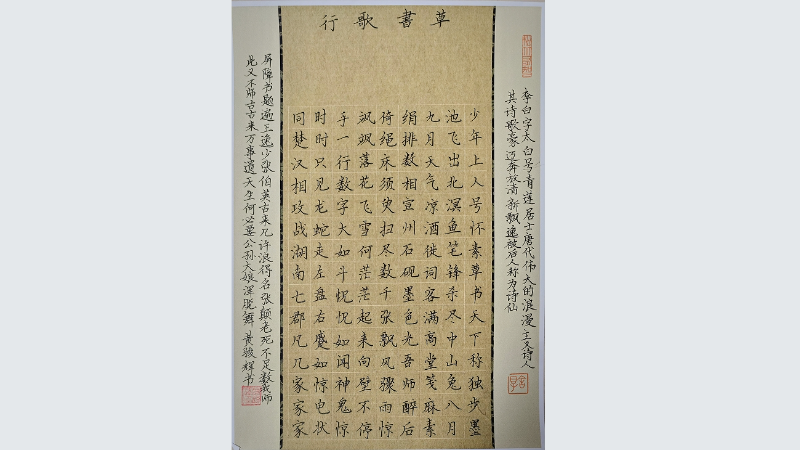 草書歌行
李白字太白号青莲居士唐代伟大的浪漫主义诗人
其诗歌豪迈奔放清新飘逸被后人称为诗仙
少年上人号怀素草书天下称独步墨
池飞出北溟鱼笔锋杀尽中山兔八月
九月天气凉酒徒词客满高堂笺麻素
绢排数相宣州石砚墨色光吾师醉后
倚绳床须臾扫尽数千张飘风骤雨惊
飒飒落花飞雪何茫茫起来向壁不停
手一行数字大如斗恍恍如闻神鬼惊
时时只见龙蛇走左盘右蹙如惊电状
同楚汉相攻战湖南七郡凡几家家家
屏障书题遍王逸少张伯英古来几许浪得名张颠老死不足数我师
此义不师古古来万事遗天生何必要公孙大娘浑脱舞 黄骏辉书